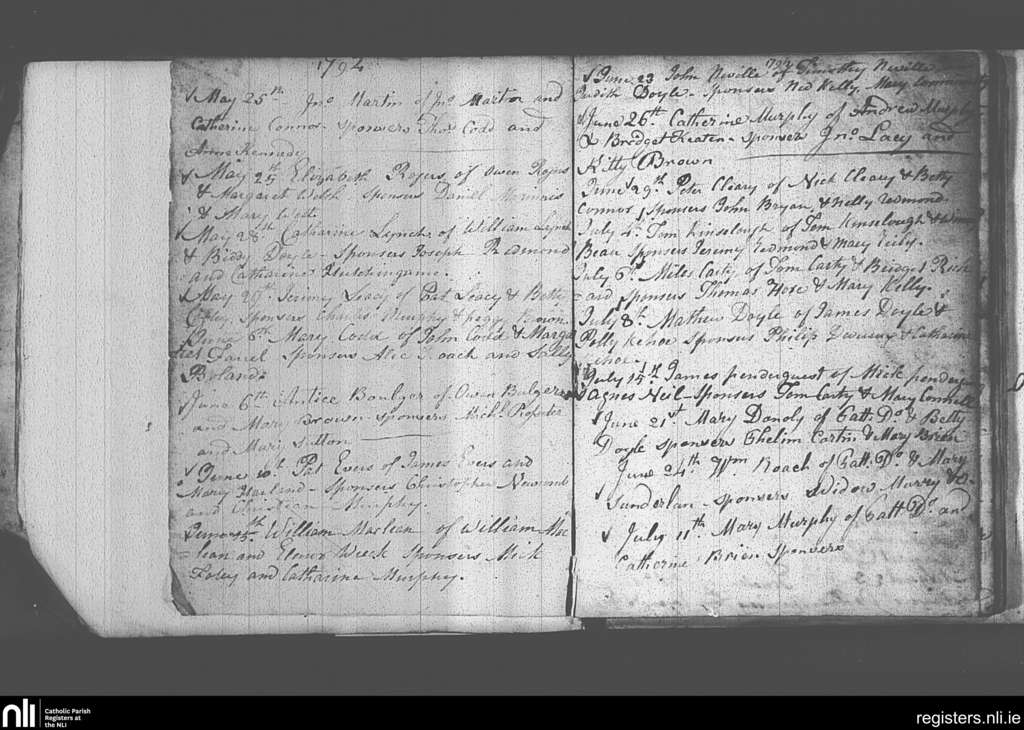 1794
May 25th Jno Martin of Jno Martin and
Catherine Connor - Sponsers Thos Codd and
Anne Kennedy
May 25th Elizabeth Rogers of Owen Rogers
& Margaret Welsh Sponsers Daniel
& Mary
May 28th Catharine Lynch of William Lynch
& Biddy Doyle - Sponsers Joseph Redmond
and Catharine Hutchingame.
May 29th Jeremy Leacy of Pat Leacy & Betty
Sponsers Charles Murphy & Peggy Brown
June 6th Mary Codd of John Codd & Marga
ret Daniel Sponsers Alic Roach and Sally
Boland
June 6th Antice Boulger of Owen Bulger
and Mary Brown - Sponsers Michl
and Mary Sutton
June 10th Pat Evers of James Evers and
Mary Harland - Sponsers Christopher
and Christian Murphy.
June 15th William Maclean of William Mac
= lean and Week Sponsers Mick
Foley and Catharine Murphy.
1794
June 23 John Neville of Timothy Neville
Judith Doyle - Sponsers Ned Kelly, Mary
June 26th Catherine Murphy of Andrew Murphy
& Bredget Keaten - Sponsers Jno Lacy and
Kitty Brown
June 29th Peter Cleary of Nick Cleary & Betty
Connor, Sponsers John Bryan, & Nelly Redmond.
July 4th Tom Kinselough of Tom Kinselough &
Bean Sponsers Jeremy Redmond & Mary
July 6th Miles Carty of Tom Carty & Bridget Rich
= ard Sponsers Thomas Hore & Mary Kelly.
July 8th Mathew Doyle of James Doyle &
Polly Kehoe Sponsers Philip & Catharine
Kehoe.
July 15th James penderguest of Mick
Agnes Neil - Sponsers Tom Carty & Mary
June 21st Mary Donoly of Patt. Do & Betty
Doyle Sponsers Phelim & Mary Brien
June 24th Wm Roach of Patt. Do & Mary
Sunderlan - Sponsers Widow Murry &
July 11th Mary Murphy of Patt Do and
Catherine Brien Sponsers
nli
Catholic Parish
Registers at
the NLI
registers.nli.ie